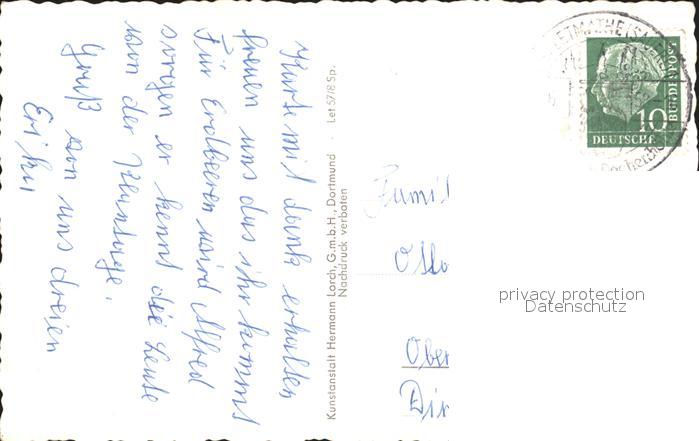 Karte mit dank erhalten
freuen uns das ihr kommt
Für Erdbeeren wird Alfred
sorgen er kennt die Leute
von der Plantage.
Gruß von uns dreien
Kunstanstalt Hermann Lorch, G.m.b.H., Dortmund · Let 57/8 Sp.
Nachdruck verboten
LETMATHE (SAUERL
10
DEUTSCHE
BUNDESPOST
Famil
Otto
Ober
Dir
privacy protection
Datenschutz